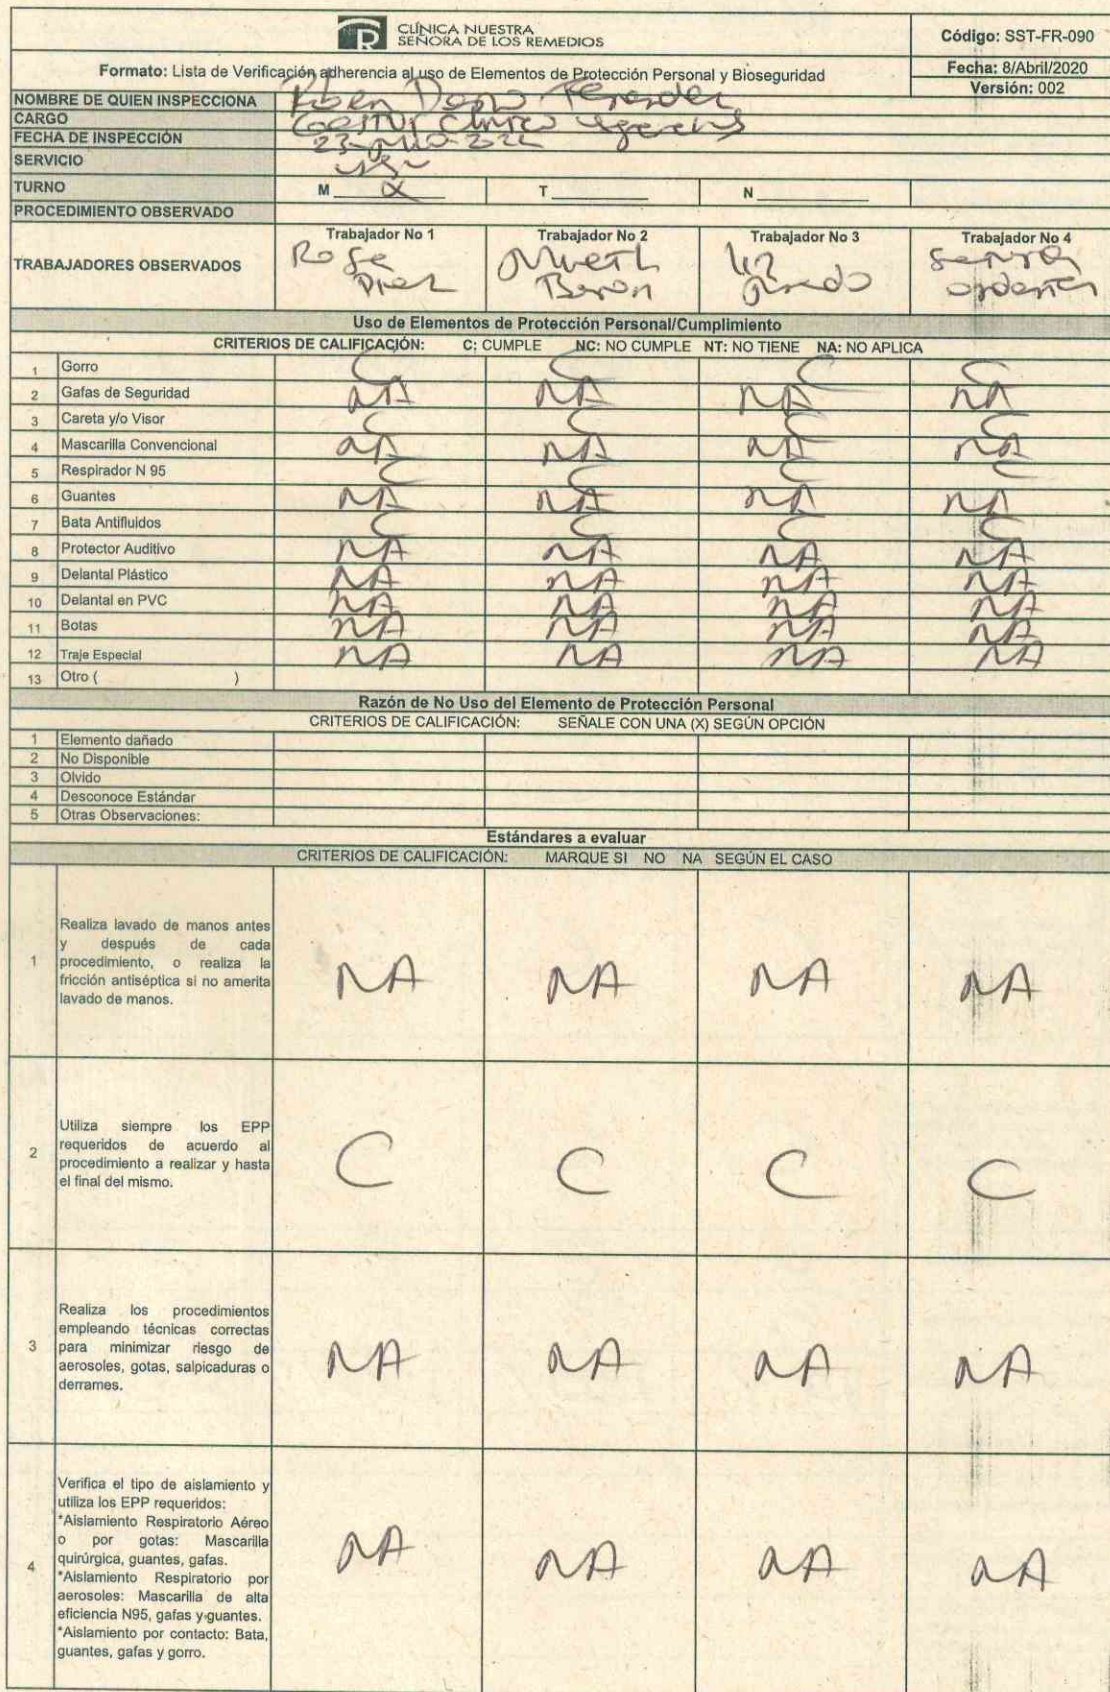 CLÍNICA NUESTRA
SEÑORA DE LOS REMEDIOS
Código: SST-FR-090
Formato: Lista de Verificación adherencia al uso de Elementos de Protección Personal y Bioseguridad
Fecha: 8/Abril/2020
Versión: 002
NOMBRE DE QUIEN INSPECCIONA
CARGO
FECHA DE INSPECCIÓN 23
SERVICIO
TURNO M X T N
PROCEDIMIENTO OBSERVADO
TRABAJADORES OBSERVADOS
Trabajador No 1 Trabajador No 2 Trabajador No 3 Trabajador No 4
Uso de Elementos de Protección Personal/Cumplimiento
CRITERIOS DE CALIFICACIÓN: C: CUMPLE NC: NO CUMPLE NT: NO TIENE NA: NO APLICA
1 Gorro C C C C
2 Gafas de Seguridad NA NA NA NA
3 Careta y/o Visor C C C C
4 Mascarilla Convencional NA NA NA NA
5 Respirador N 95 C C C C
6 Guantes NA NA NA NA
7 Bata Antifluidos C C C C
8 Protector Auditivo NA NA NA NA
9 Delantal Plástico NA NA NA NA
10 Delantal en PVC NA NA NA NA
11 Botas NA NA NA NA
12 Traje Especial NA NA NA NA
13 Otro ( )
Razón de No Uso del Elemento de Protección Personal
CRITERIOS DE CALIFICACIÓN: SEÑALE CON UNA (X) SEGÚN OPCIÓN
1 Elemento dañado
2 No Disponible
3 Olvido
4 Desconoce Estándar
5 Otras Observaciones:
Estándares a evaluar
CRITERIOS DE CALIFICACIÓN: MARQUE SI NO NA SEGÚN EL CASO
Realiza lavado de manos antes
y después de cada
1 procedimiento, o realiza la
fricción antiséptica si no amerita
lavado de manos.
NA NA NA NA
Utiliza siempre los EPP
2 requeridos de acuerdo al
procedimiento a realizar y hasta
el final del mismo.
C C C C
Realiza los procedimientos
empleando técnicas correctas
3 para minimizar riesgo de
aerosoles, gotas, salpicaduras o
derrames.
NA NA NA NA
Verifica el tipo de aislamiento y
utiliza los EPP requeridos:
*Aislamiento Respiratorio Aéreo
o por gotas: Mascarilla
quirúrgica, guantes, gafas.
4 *Aislamiento Respiratorio por
aerosoles: Mascarilla de alta
eficiencia N95, gafas y guantes.
*Aislamiento por contacto: Bata,
guantes, gafas y gorro.
NA NA NA NA